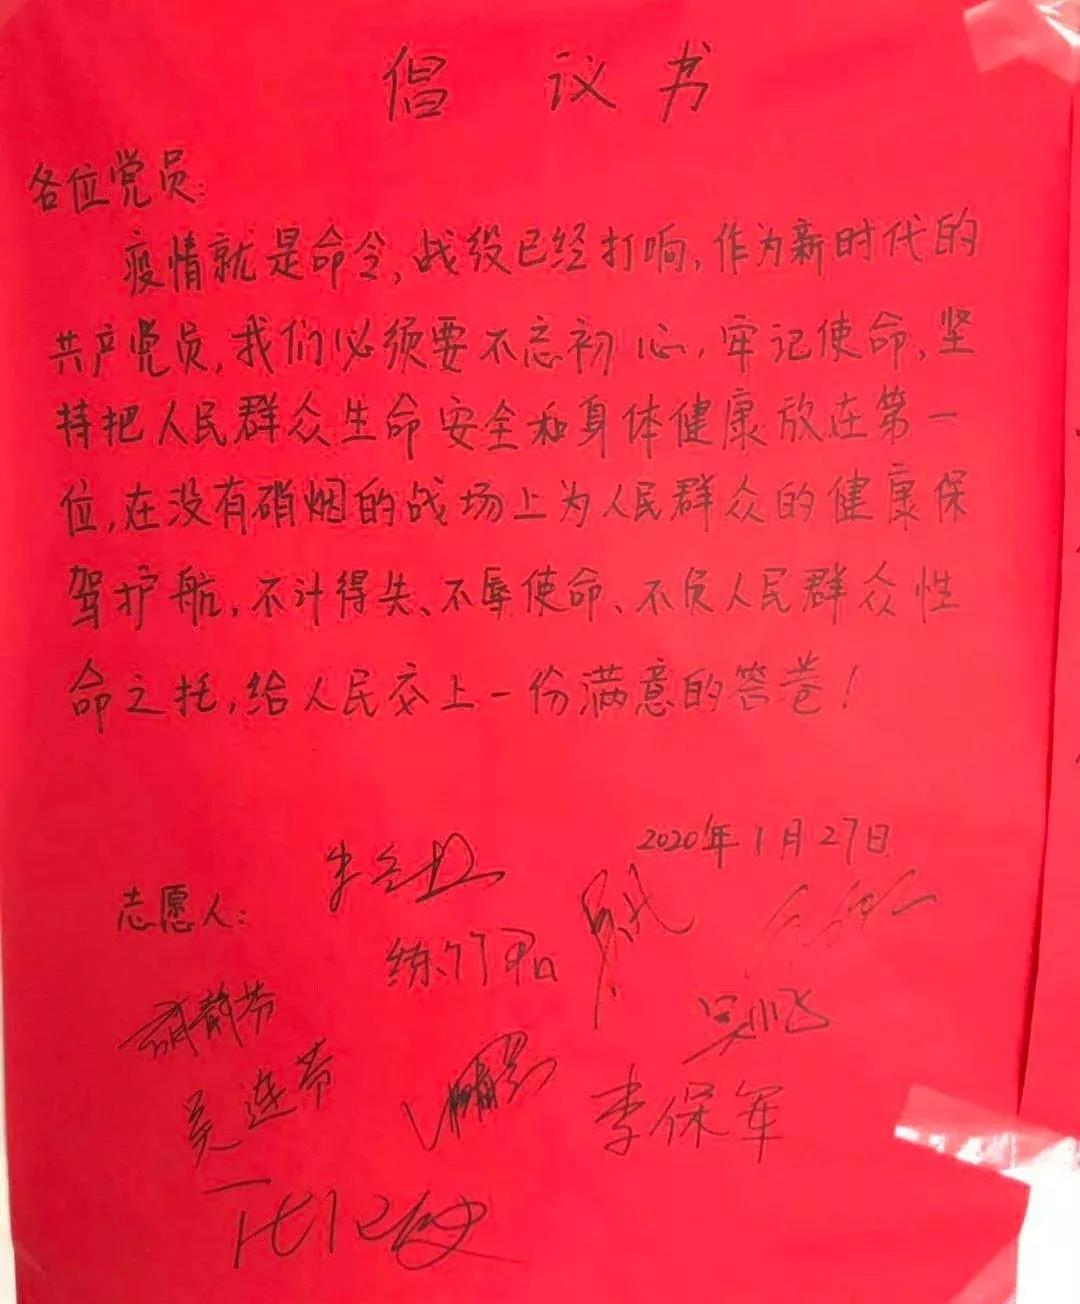 倡议书
各位党员:
疫情就是命令,战役已经打响,作为新时代的
共产党员,我们必须要不忘初心,牢记使命,坚
持把人民群众生命安全和身体健康放在第一
位,在没有硝烟的战场上为人民群众的健康保
驾护航,不计得失、不辱使命、不负人民群众性
命之托,给人民交上一份满意的答卷!
2020年1月27日
志愿人:
吴小飞
吴连芳
李保军